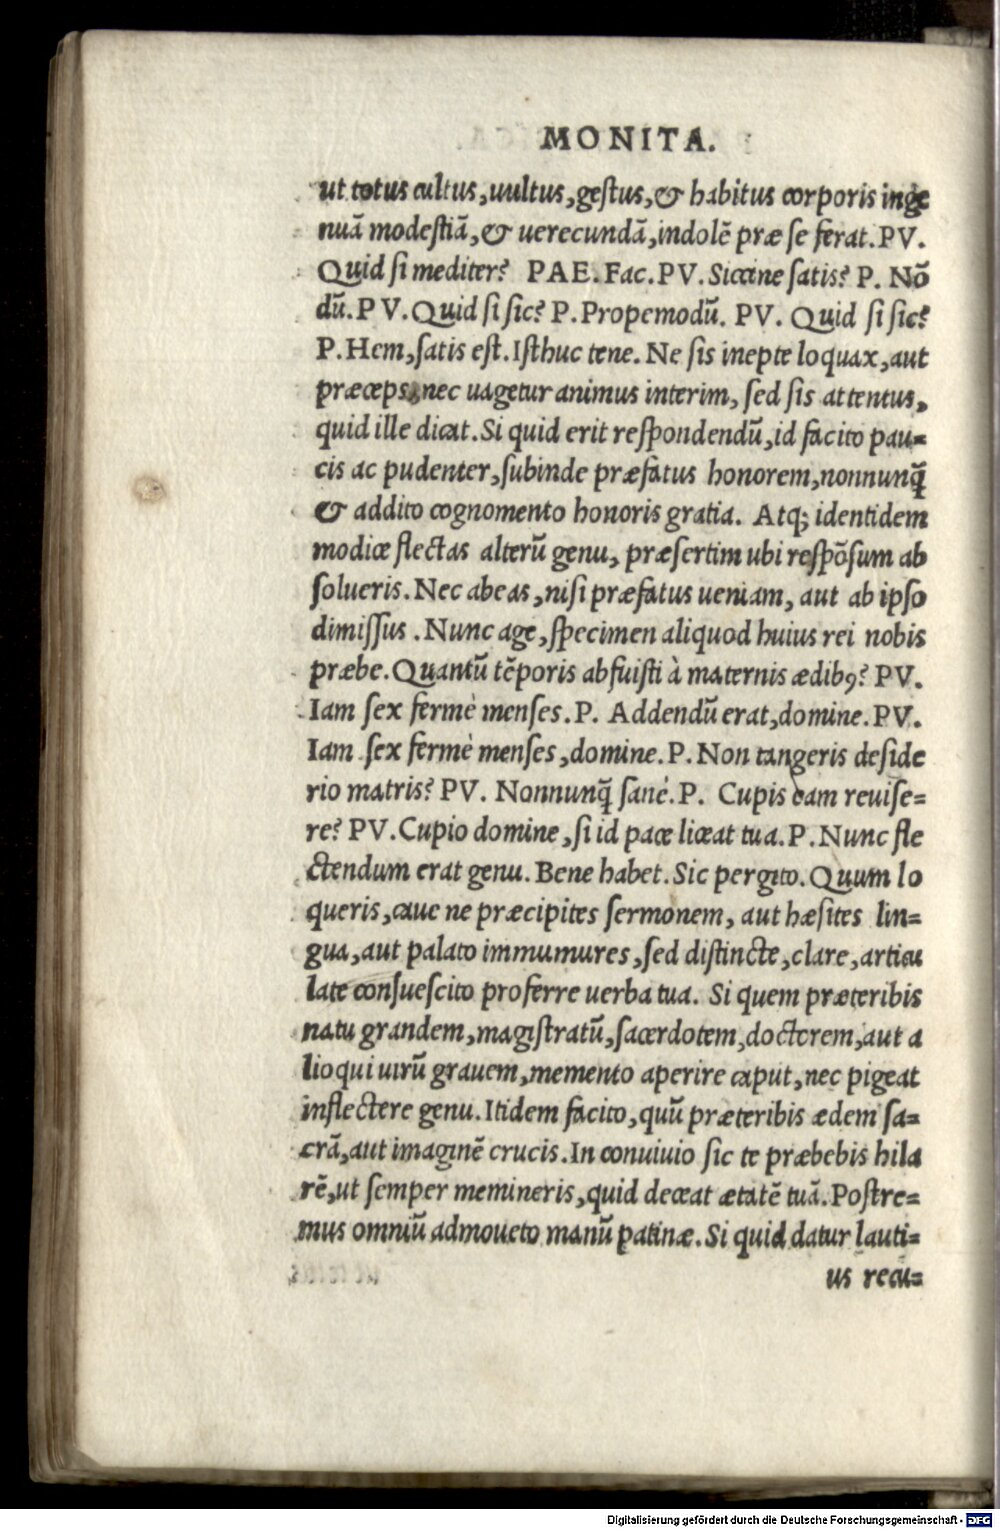 MONITA.
ut totus cultus, uultus, gestus, & habitus corporis inge
nuā modestiā, & uerecundā, indolē præ se ferat. PV.
Quid si mediter? PAE. Fac. PV. Siccine satis? P. Nō
dū. PV. Quid si sic? P. Propemodū. PV. Quid si sic?
P. Hem, satis est. Isthuc tene. Ne sis inepte loquax, aut
præceps, nec uagetur animus interim, sed sis attentus,
quid ille dicat. Si quid erit respondendū, id facito pau=
cis ac pudenter, subinde præfatus honorem, nonnunq̄
& addito cognomento honoris gratia. Atq; identidem
modice flectas alterū genu, præsertim ubi respōsum ab
solueris. Nec abeas, nisi præfatus ueniam, aut ab ipso
dimissus. Nunc age, specimen aliquod huius rei nobis
præbe. Quantū tēporis abfuisti à maternis ædibꝰ? PV.
Iam sex fermè menses. P. Addendū erat, domine. PV.
Iam sex fermè menses, domine. P. Non tangeris deside
rio matris? PV. Nonnunq̄ sanè. P. Cupis eam reuise=
re? PV. Cupio domine, si id pace liceat tua. P. Nunc fle
ctendum erat genu. Bene habet. Sic pergito. Quum lo
queris, caue ne præcipites sermonem, aut hæsites lin=
gua, aut palato immumures, sed distincte, clare, articu
late consuescito proferre uerba tua. Si quem præteribis
natu grandem, magistratū, sacerdotem, doctorem, aut a
lioqui uirū grauem, memento aperire caput, nec pigeat
inflectere genu. Itidem facito, quū præteribis ædem sa=
crā, aut imaginē crucis. In conuiuio sic te præbebis hila
rē, ut semper memineris, quid deceat ætatē tuā. Postre=
mus omniū admoueto manū patinæ. Si quid datur lauti=
us recu=
Digitalisierung gefördert durch die Deutsche Forschungsgemeinschaft - DFG